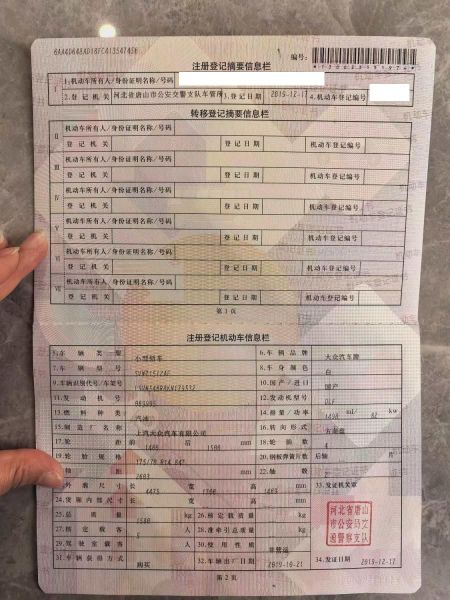 注册登记摘要信息栏
编号:
1.机动车所有人/身份证明名称/号码
2.登记机关 河北省唐山市公安交警支队车管所 3.登记日期 2019-12-17 4.机动车登记编号
转移登记摘要信息栏
II 机动车所有人/身份证明名称/号码
登记机关 登记日期 机动车登记编号
III 机动车所有人/身份证明名称/号码
登记机关 登记日期 机动车登记编号
IV 机动车所有人/身份证明名称/号码
登记机关 登记日期 机动车登记编号
V 机动车所有人/身份证明名称/号码
登记机关 登记日期 机动车登记编号
VI 机动车所有人/身份证明名称/号码
登记机关 登记日期 机动车登记编号
VII 机动车所有人/身份证明名称/号码
登记机关 登记日期 机动车登记编号
第1页
注册登记机动车信息栏
5.车辆类型 小型轿车 6.车辆品牌 大众汽车牌
7.车辆型号 8.车身颜色 白
9.车辆识别代号/车架号 10.国产/进口 国产
11.发动机号 12.发动机型号 DLF
13.燃料种类 汽油 14.排量/功率 ml/ 82 kw
15.制造厂名称 上汽大众汽车有限公司 16.转向形式 方向盘
17.轮距 前 后 1500 mm 18.轮胎数 4
19.轮胎规格 175/70 R14 84T 20.钢板弹簧片数 后轴 片
21.轴距 mm 22.轴数 2 33.发证机关章
23.外廓尺寸 长 4475 宽 1706 高 mm
24.货厢内部尺寸 长 宽 高 mm
25.总质量 1580 kg 26.核定载质量 kg
27.核定载客 5 人 28.准牵引总质量 kg
29.驾驶室载客 人 30.使用性质 非营运
31.车辆获得方式 购买 32.车辆出厂日期 2019-10-21 34.发证日期 2019-12-17
河北省唐山
市公安局交
通警察支队
第2页